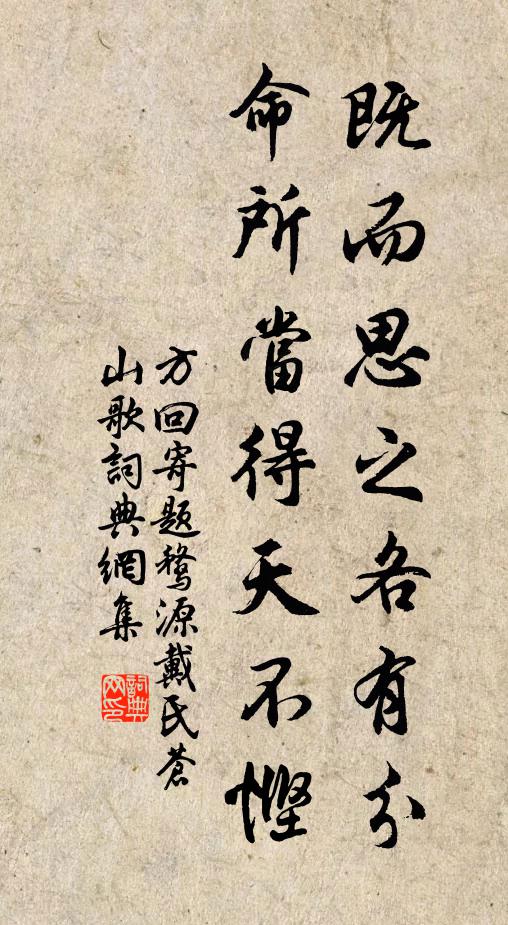 既而思之各有分
命所當得天不慳
方回寄题鹜源戴氏蒼
山歌詞典網集
詞典
网印